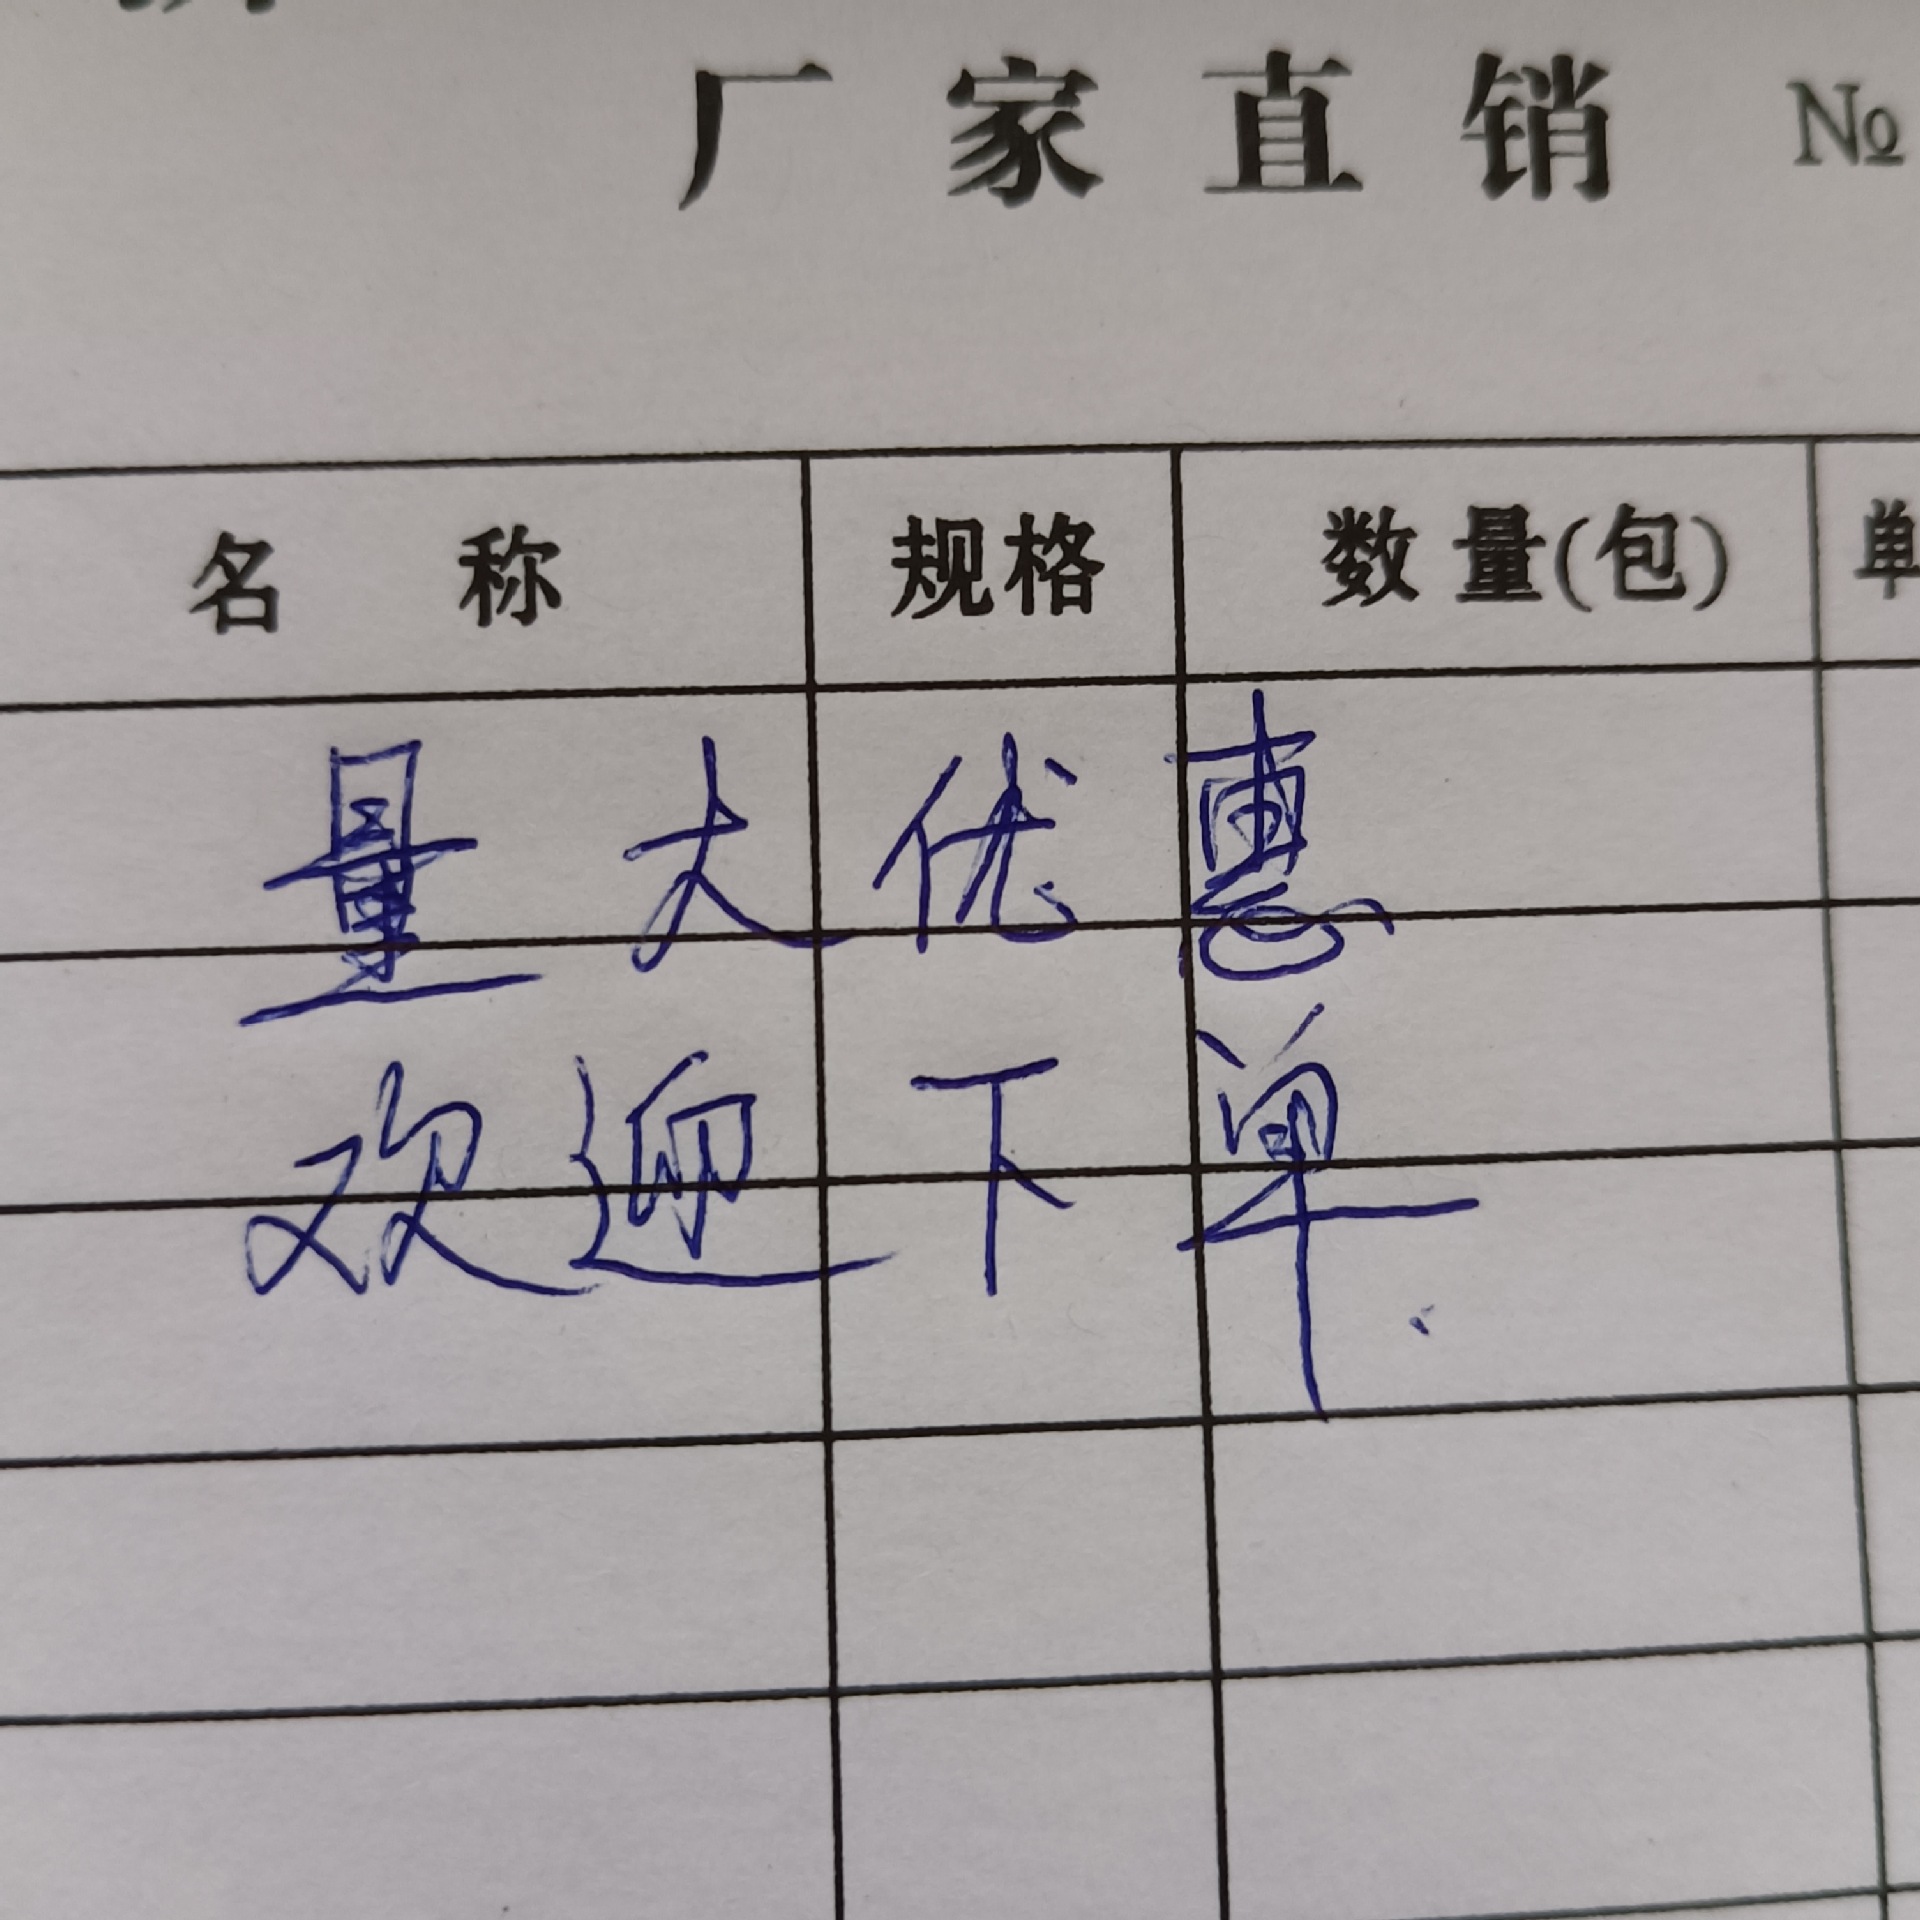 厂家直销 №
名称 规格 数量(包) 单
量大优惠
欢迎下单.